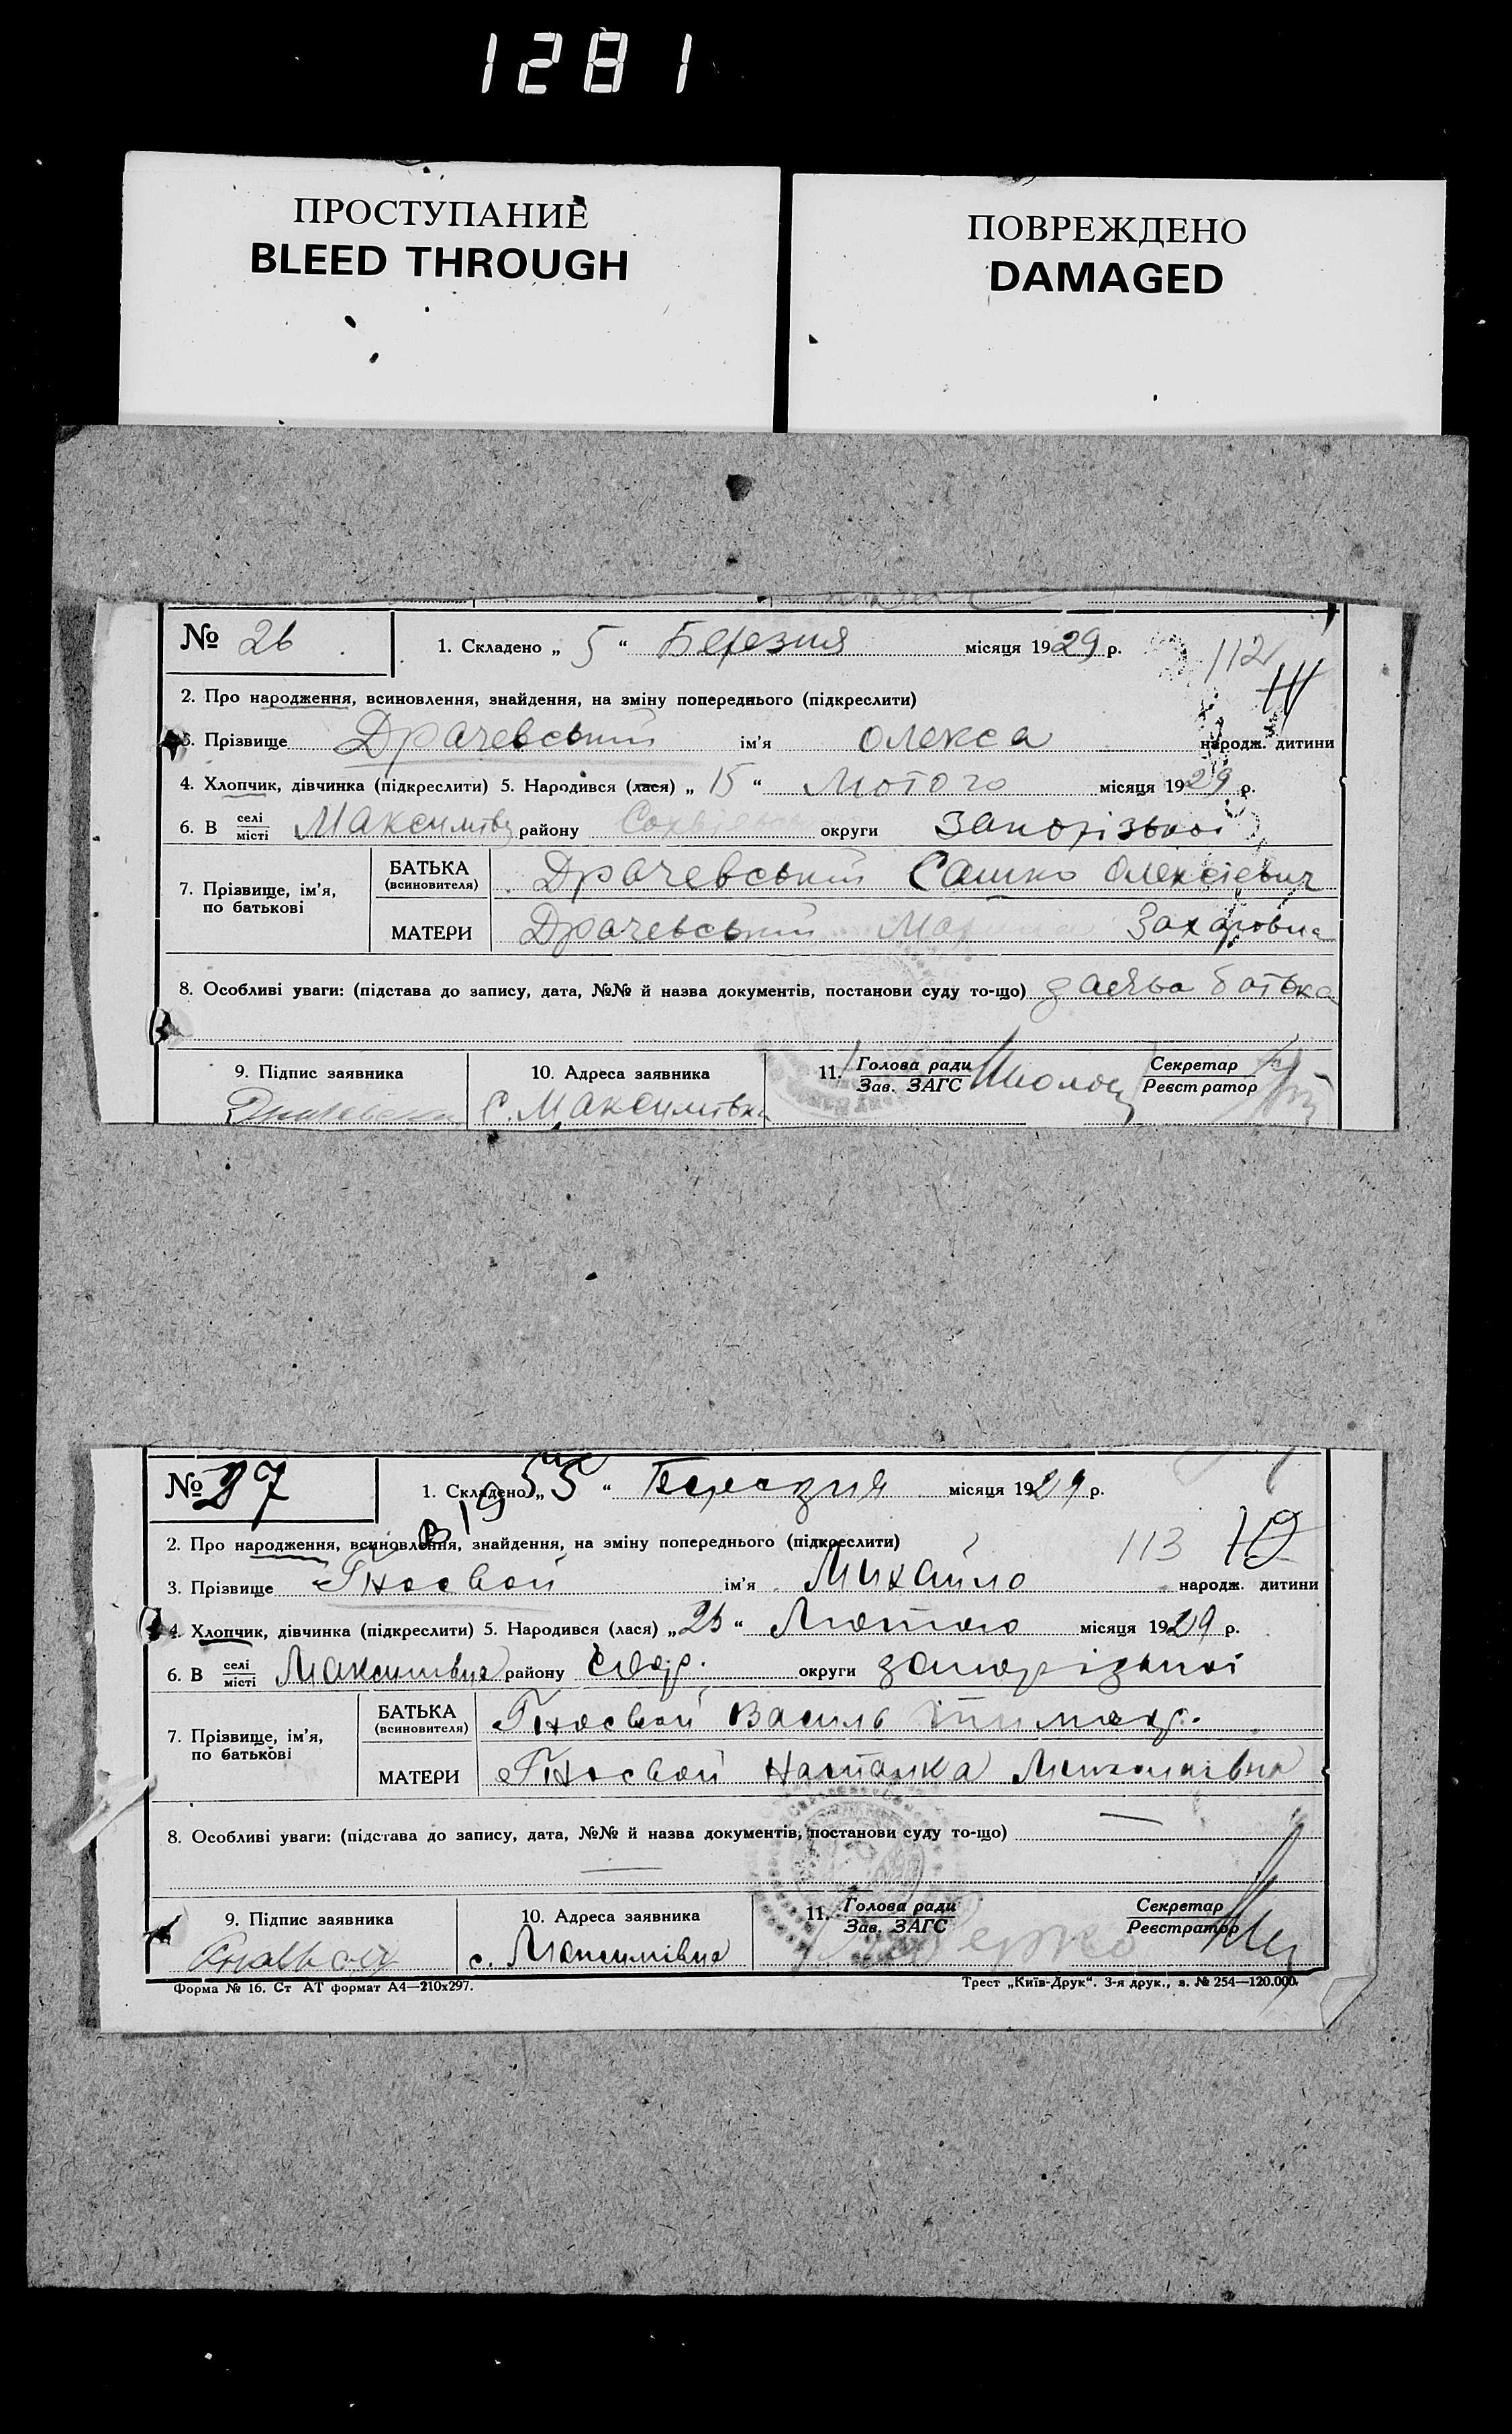 1281
ПРОСТУПАНИЕ
BLEED THROUGH
ПОВРЕЖДЕНО
DAMAGED
№ 26 1. Складено „ 5 “ Березня місяця 1929 р. 112
2. Про народження, всиновлення, знайдення, на зміну попереднього (підкреслити)
3. Прізвище Драчевський ім'я Олекса народж. дитини
4. Хлопчик, дівчинка (підкреслити) 5. Народився (лася) „ 15 “ Лютого місяця 1929 р.
6. В селі/місті Максимівц району округи Запорізької
7. Прізвище, ім'я, по батькові
БАТЬКА (всиновителя) Драчевський Сашко Олексієвич
МАТЕРИ Драчевський Захаровна
8. Особливі уваги: (підстава до запису, дата, №№ й назва документів, постанови суду то-що) заява батька
9. Підпис заявника 10. Адреса заявника 11. Голова ради/Зав. ЗАГС Секретар/Реєстратор
С. Максимівка
№ 27 1. Складено „ 5 “ Березня місяця 1929 р.
2. Про народження, всиновлення, знайдення, на зміну попереднього (підкреслити) 113
3. Прізвище Гносвой ім'я Михайло народж. дитини
4. Хлопчик, дівчинка (підкреслити) 5. Народився (лася) „ 25 “ Лютого місяця 1929 р.
6. В селі/місті Максимівца району округи запорізької
7. Прізвище, ім'я, по батькові
БАТЬКА (всиновителя) Гносвой Василь
МАТЕРИ Гносвой Наталка Миколаївна
8. Особливі уваги: (підстава до запису, дата, №№ й назва документів, постанови суду то-що) —
9. Підпис заявника 10. Адреса заявника 11. Голова ради/Зав. ЗАГС Секретар/Реєстратор
с. Максимівца
Форма № 16. Ст АТ формат А4—210х297. Трест „Київ-Друк“. 3-я друк., з. № 254—120.000.